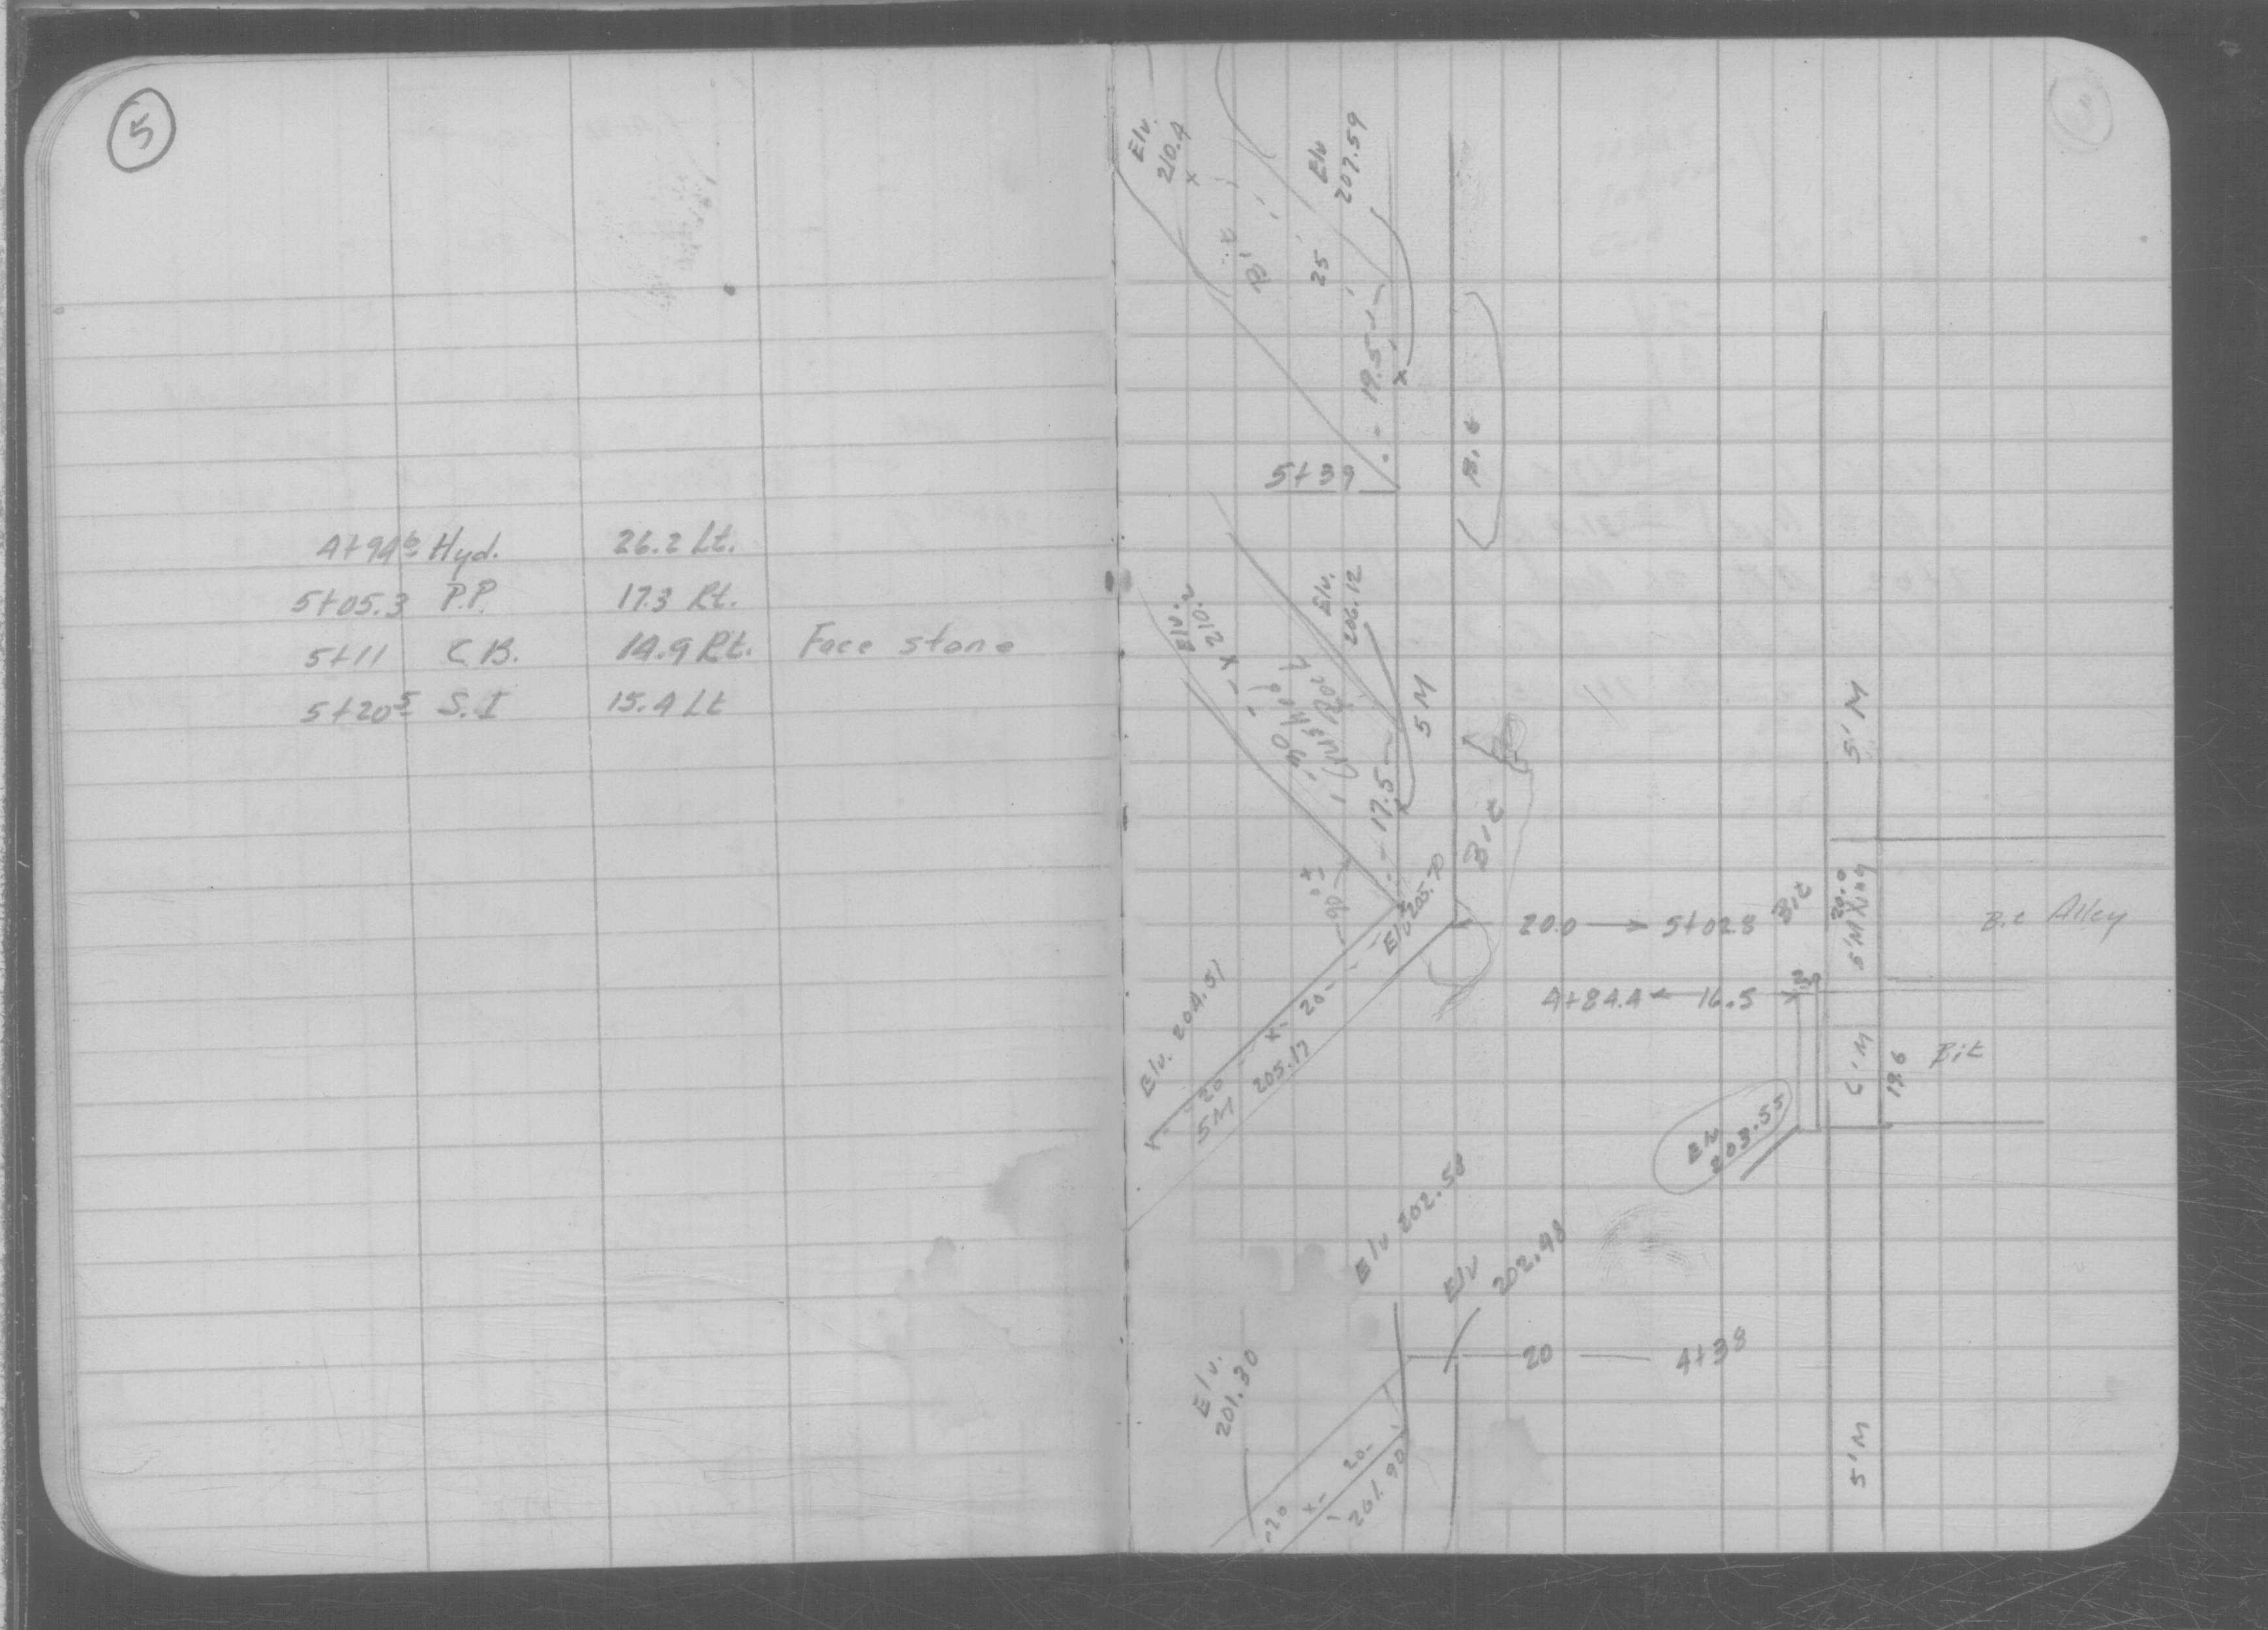 5
4+94⁶ Hyd. 26.2 Lt.
5+05.3 P.P. 17.3 Rt.
5+11 C.B. 14.9 Rt. Face stone
5+20⁵ S.I 15.4 Lt
Elv.
210.4
x
Bit
25
Elv
207.59
19.5
x
5+39
Bit
Elv.
210.2
x
Elv.
206.12
5M
17.5
x
90°±
Bit
Elv 205.70
20.0 → 5+02.8
Bit
5'M
20.0
5'M
Bit Alley
4+84.4 ← 16.5
6'M
19.6
Bit
Elv
203.55
Elv. 204.51
20
x
20
5M
205.17
Elv 202.58
Elv
202.48
20 4+38
Elv.
201.30
20
x
20
201.90
5'M